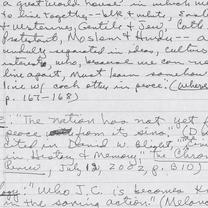 a great world house" in which we
to live together — blk & white,
& Westerner, Gentile & Jew, Cath
Protestant, Moslem & Hindu — a
unduly separated in ideas, culture
interests, who, because we can nev
live apart, must learn somehow
live w/ each other in peace. (Where
p. 167-168)
: "The nation has not yet f
peace from its sins," (D
cited in David W. Blight
in History & Memory," The Chron
July 12, 2002, p. B10)
: "Who J.C. is becomes kn
in the saving action." (Melanc